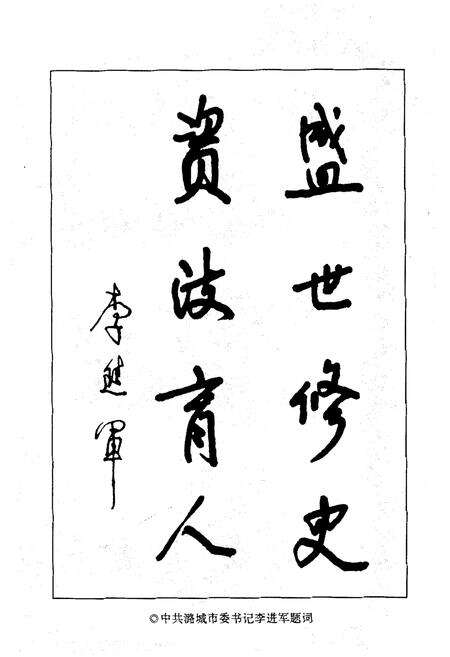 盛世修史
資政育人
李進軍
◎中共潞城市委书记李进军题词